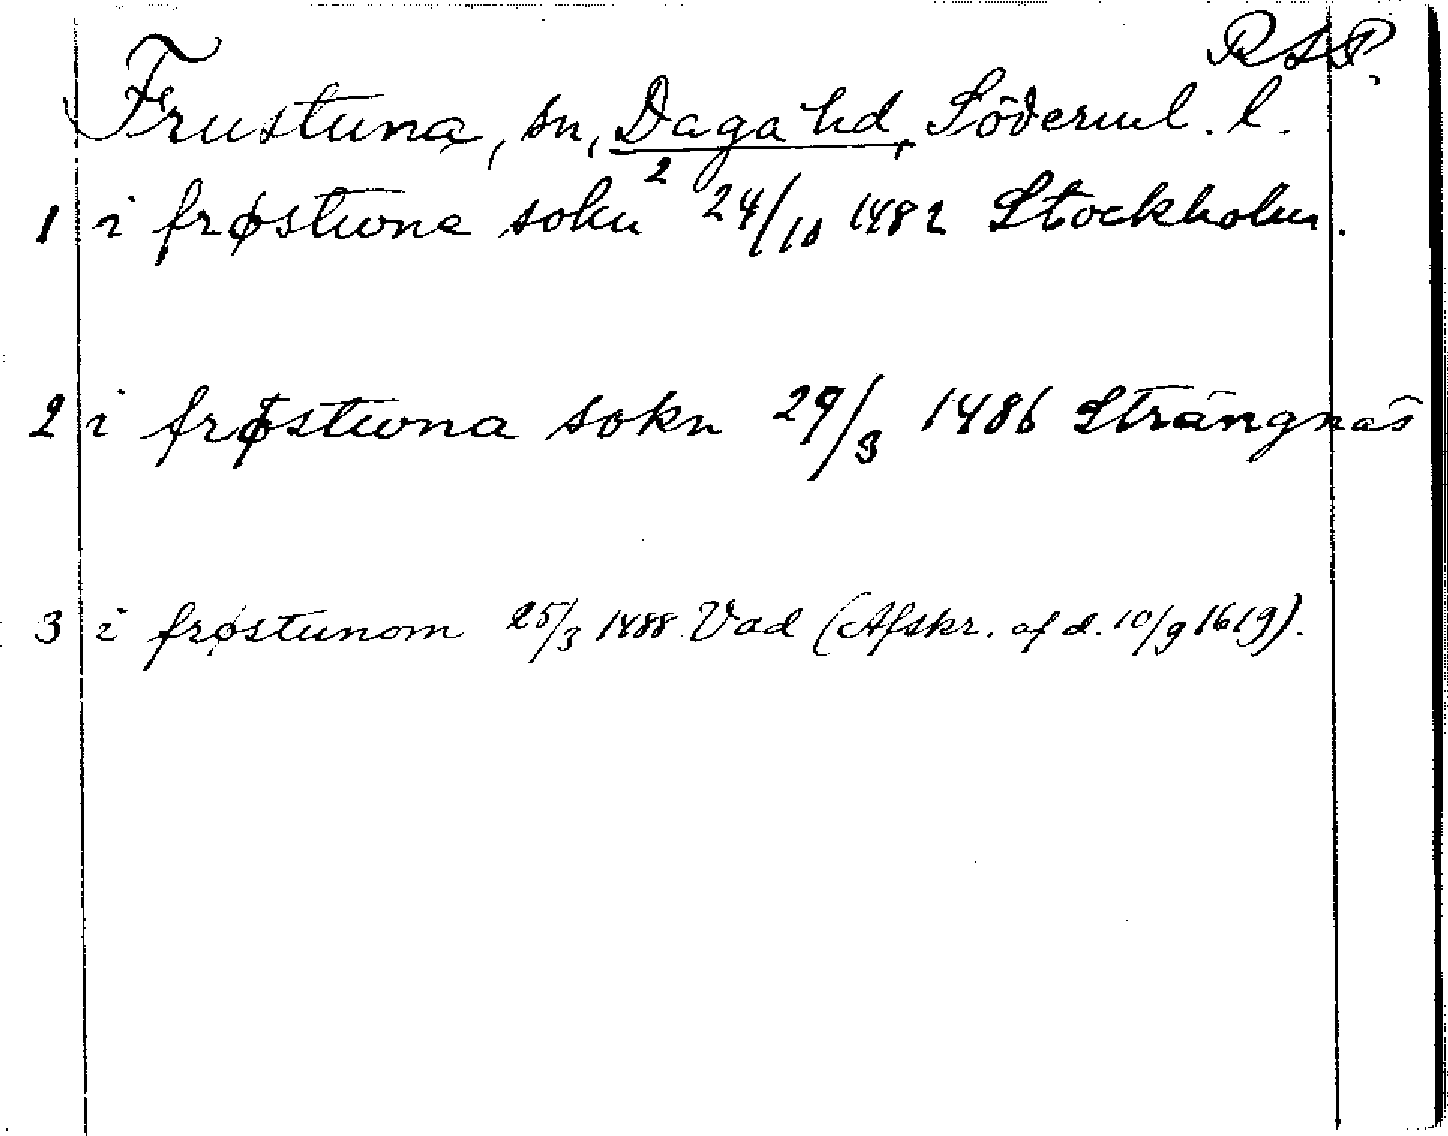 RAP
Frustuna, sn, Daga hd, Söderml. l.
2
1 i frøstwna sokn 24/10 1482 Stockholm.
2 i frøstwna sokn 29/3 1486 Strängnäs
3 i frøstunom 25/3 1488 Vad (Afskr. af d. 10/9 1619).